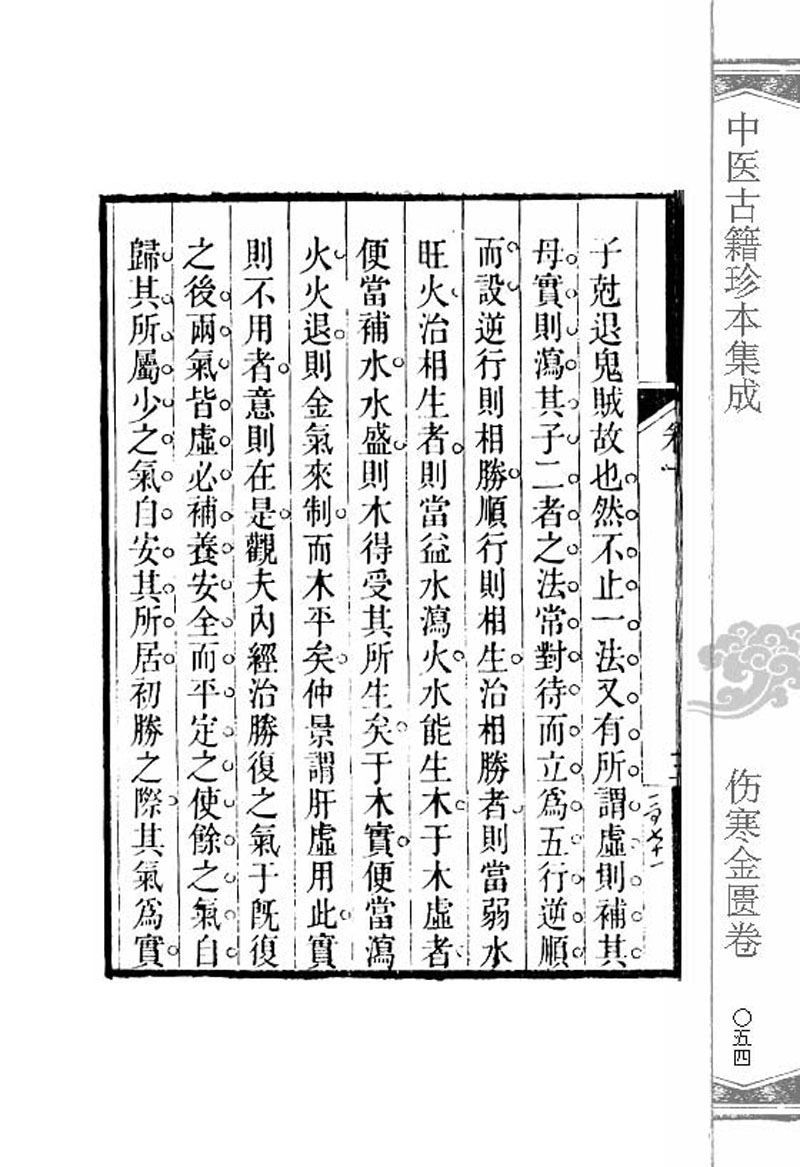 中医古籍珍本集成
伤寒金匮卷
〇五四
卷一
子尅退鬼賊故也然不止一法又有所謂虛則補其
母實則瀉其子二者之法常對待而立爲五行逆順
而設逆行則相勝順行則相生治相勝者則當弱水
旺火治相生者則當益水瀉火水能生木于木虛者
便當補水水盛則木得受其所生矣于木實便當瀉
火火退則金氣來制而木平矣仲景謂肝虛用此實
則不用者意則在是觀夫內經治勝復之氣于旣復
之後兩氣皆虛必補養安全而平定之使餘之氣自
歸其所屬少之氣自安其所居初勝之際其氣爲實